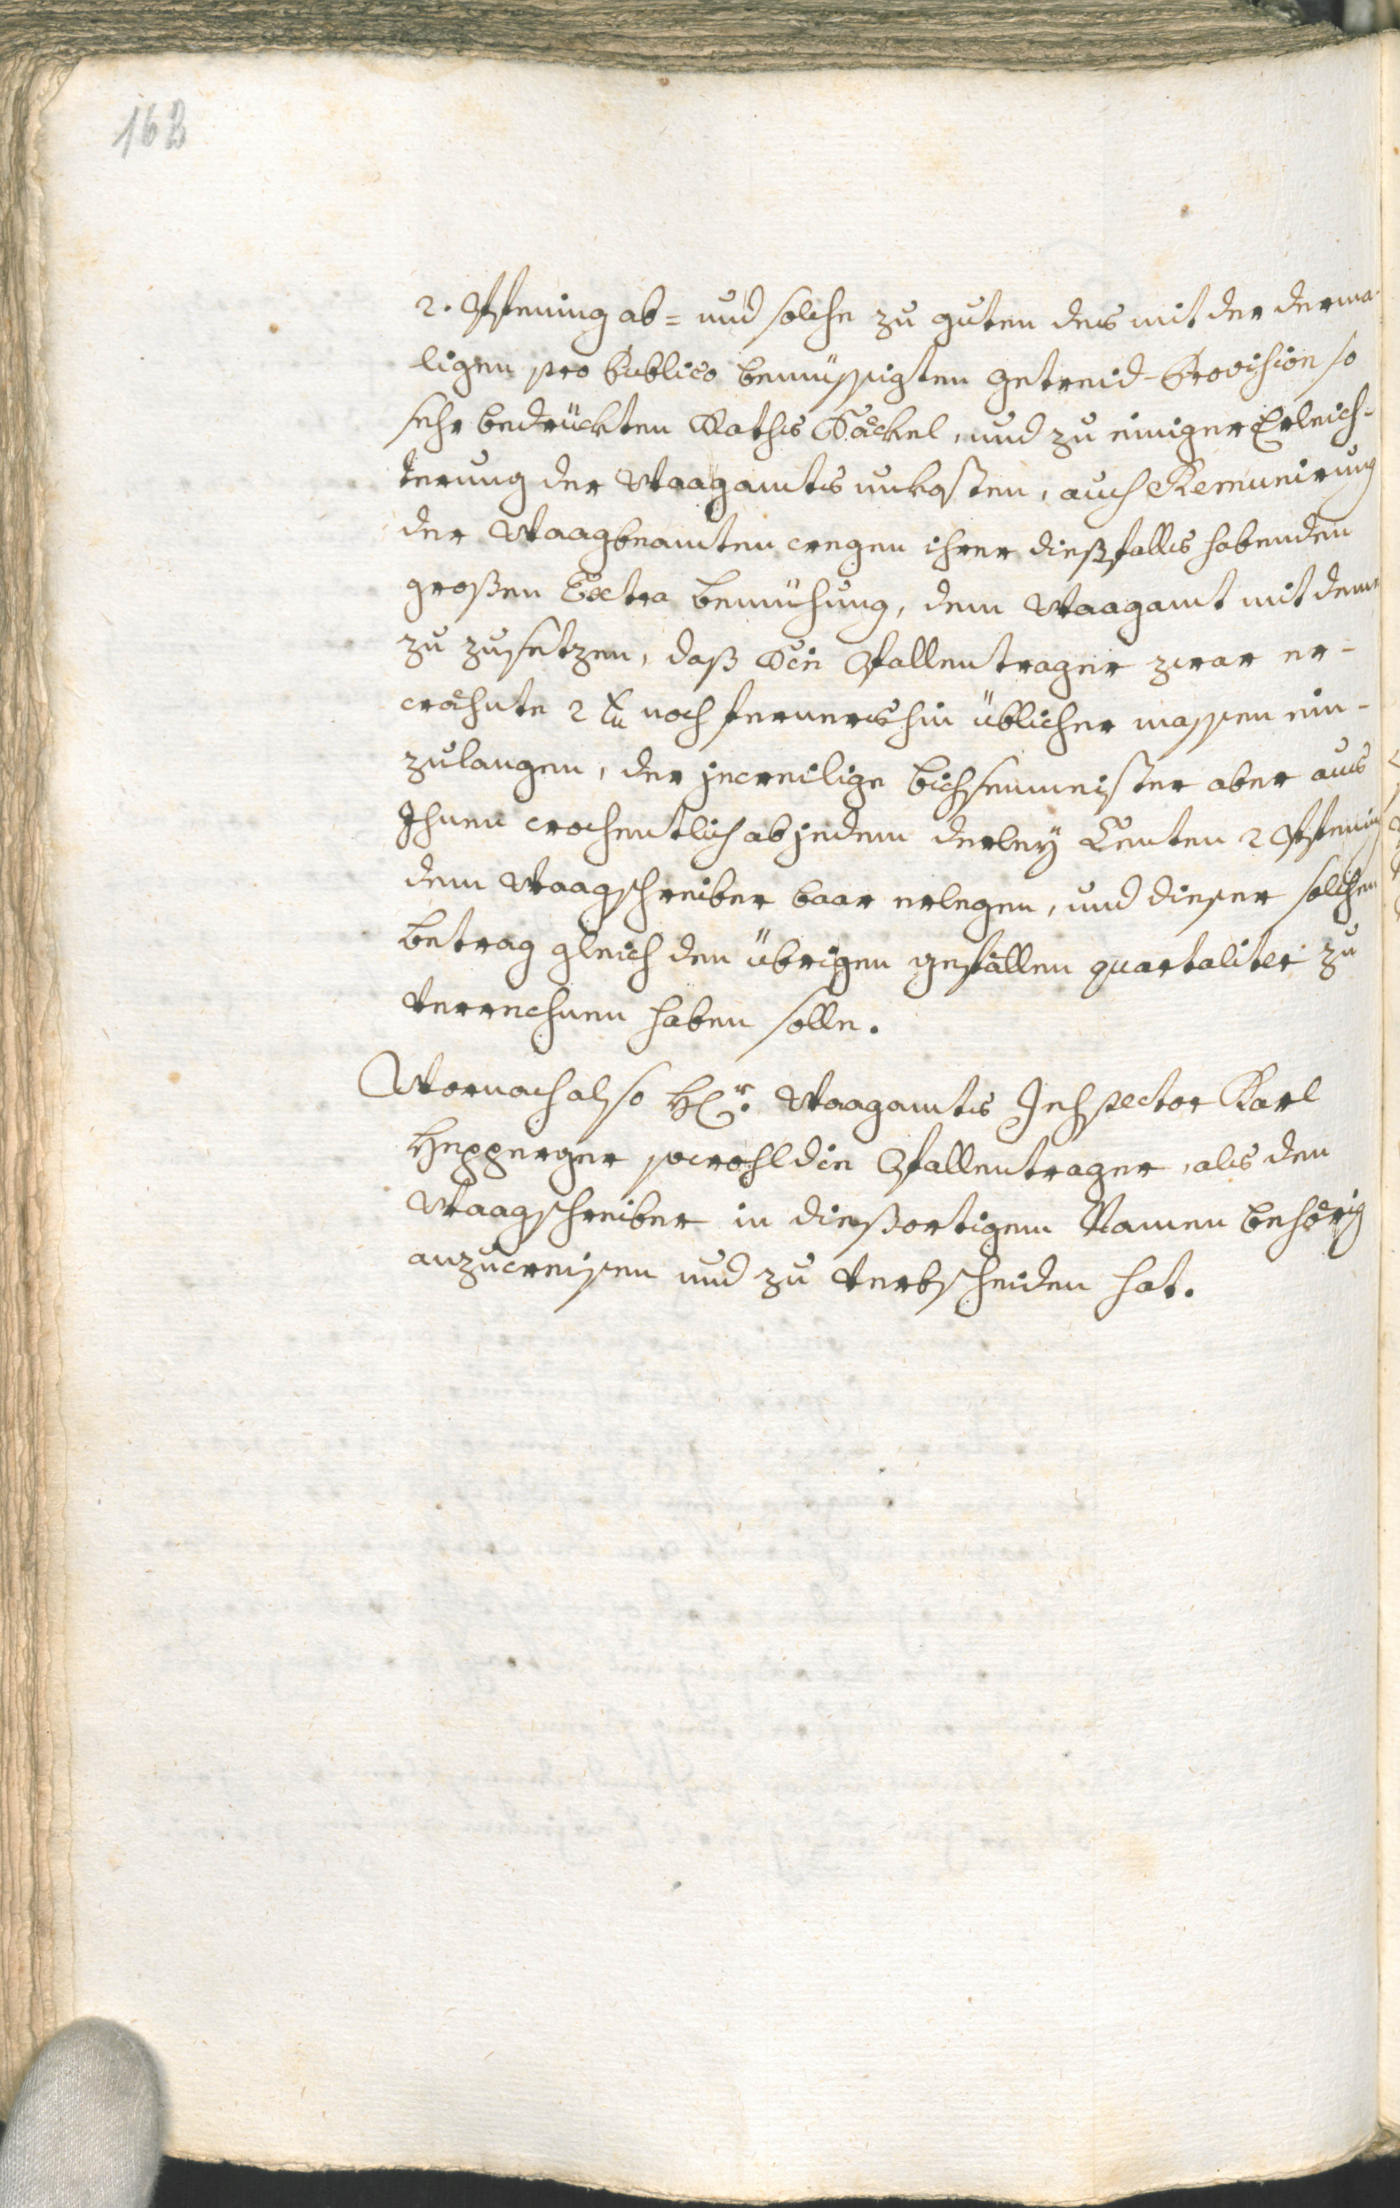 162
2. Pfening ab= und solche zu guten des mit der derma-
ligen pro Publico bemüssigten getreid-Provision so
sehr bedrückten Raths Säckel, und zu einiger Erleich-
terung der Waagamts unkosten, auch Remunerirung
der Waagbeamten wegen ihrer dießfalls habenden
großen Extra bemühung, dem Waagamt mit deme
zu zusetzen, daß die Pfallentrager zwar er-
wähnte 2 xr noch fernershin üblicher massen ein-
zulangen, der jeweilige bichsenmeister aber aus
Ihnen wochentlich ab jedem derley Centen 2 Pfening
dem Waagschreiber baar erlegen, und dieser solchen
betrag gleich den übrigen gefällen quartaliter zu
verrechnen haben solle.
Wornach also Hr. Waagamts Inspector Karl
Hepperger sowohl die Pfallentrager, als den
Waagschreiber in dießortigem Namen behörig
anzuweisen und zu verbscheiden hat.